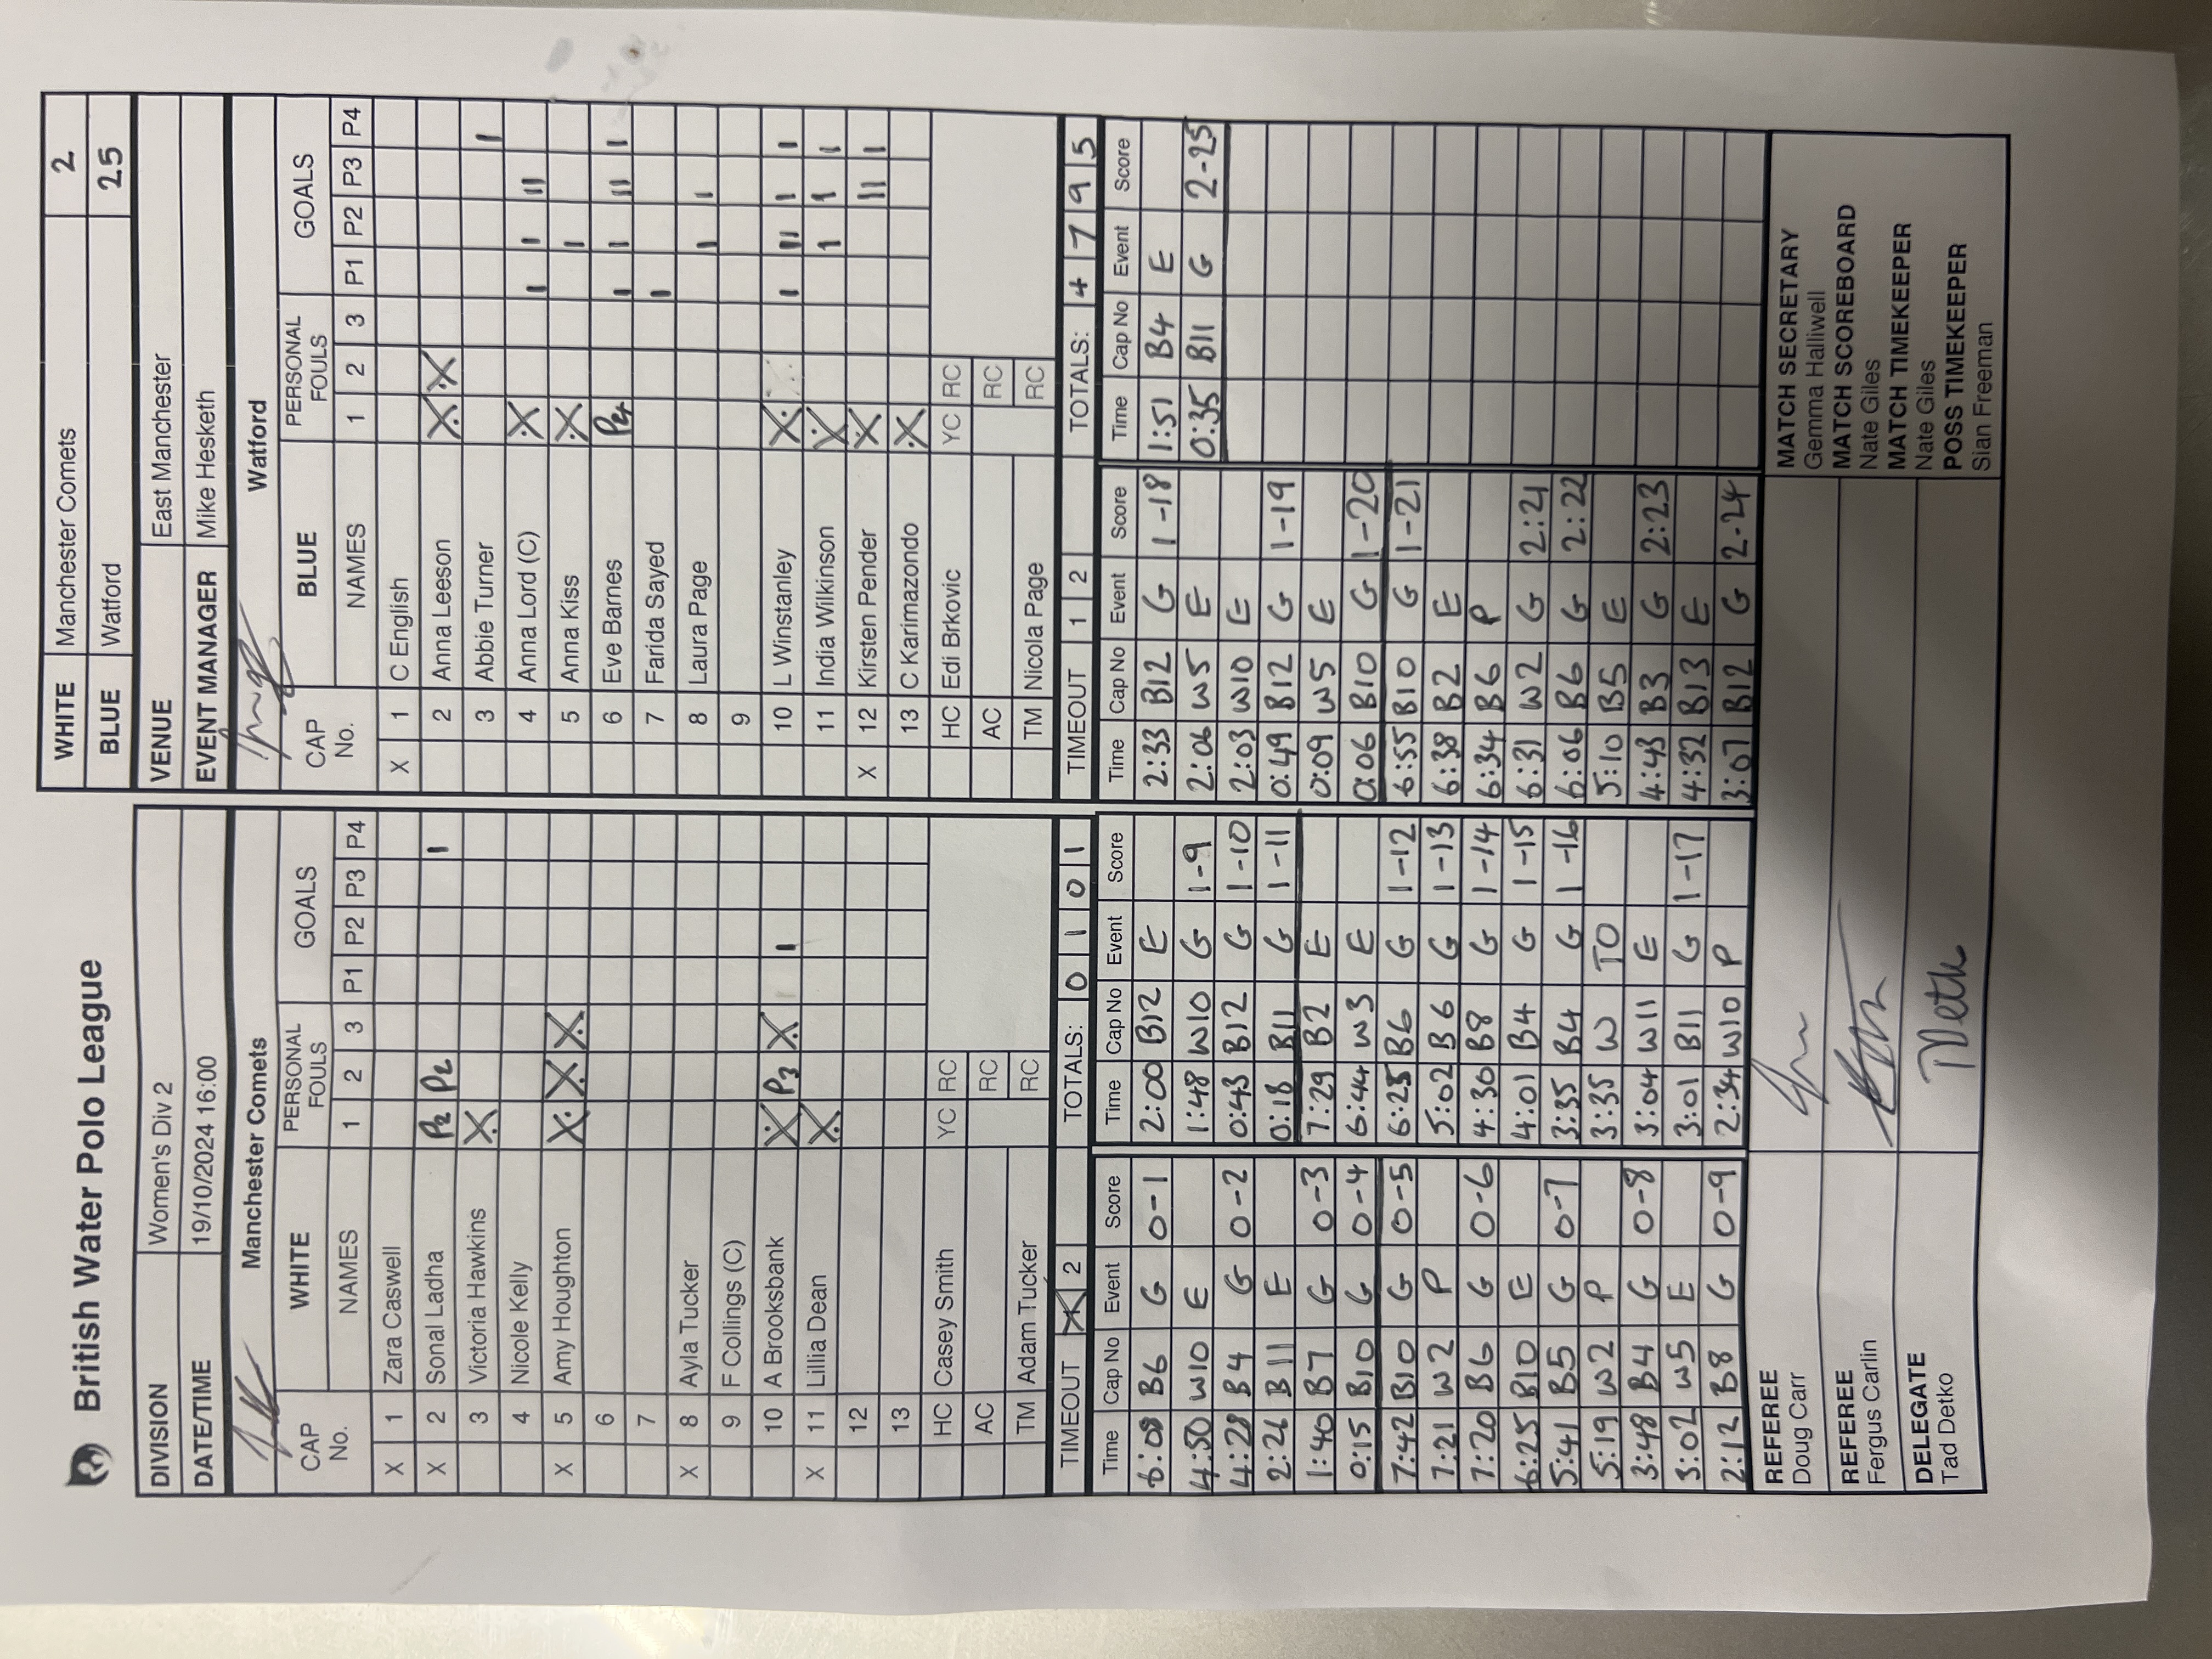 British Water Polo League
WHITE Manchester Comets 2
BLUE Watford 25
DIVISION Women's Div 2
DATE/TIME 19/10/2024 16:00
VENUE East Manchester
EVENT MANAGER Mike Hesketh
Manchester Comets
CAP No. WHITE NAMES PERSONAL FOULS 1 2 3 GOALS P1 P2 P3 P4
X 1 Zara Caswell
X 2 Sonal Ladha P2 P2 I
3 Victoria Hawkins X
4 Nicole Kelly
X 5 Amy Houghton X X X
6
7
X 8 Ayla Tucker
9 F Collings (C)
10 A Brooksbank X P3 X I
X 11 Lillia Dean X
12
13
HC Casey Smith YC RC
AC RC
TM Adam Tucker RC
TIMEOUT X 2 TOTALS: 0 1 0 1
Watford
CAP No. BLUE NAMES PERSONAL FOULS 1 2 3 GOALS P1 P2 P3 P4
X 1 C English
2 Anna Leeson X X
3 Abbie Turner I
4 Anna Lord (C) X I I II
5 Anna Kiss X I
6 Eve Barnes P4 I I II I
7 Farida Sayed I
8 Laura Page I I
9
10 L Winstanley X I II I I
11 India Wilkinson X I I I
X 12 Kirsten Pender X II I
13 C Karimazondo X
HC Edi Brkovic YC RC
AC RC
TM Nicola Page RC
TIMEOUT 1 2 TOTALS: 4 7 9 5
Time Cap No Event Score
6:08 B6 G 0-1
4:50 W10 E
4:28 B4 G 0-2
2:26 B11 E
1:40 B7 G 0-3
0:15 B10 G 0-4
7:42 B10 G 0-5
7:21 W2 P
7:20 B6 G 0-6
6:25 B10 E
5:41 B5 G 0-7
5:19 W2 P
3:48 B4 G 0-8
3:02 W5 E
2:12 B8 G 0-9
Time Cap No Event Score
2:00 B12 E
1:48 W10 G 1-9
0:43 B12 G 1-10
0:18 B11 G 1-11
7:29 B2 E
6:44 W3 E
6:25 B6 G 1-12
5:02 B6 G 1-13
4:30 B8 G 1-14
4:01 B4 G 1-15
3:35 B4 G 1-16
3:35 W TO
3:04 W11 E
3:01 B11 G 1-17
2:34 W10 P
Time Cap No Event Score
2:33 B12 G 1-18
2:06 W5 E
2:03 W10 E
0:49 B12 G 1-19
0:09 W5 E
0:06 B10 G 1-20
6:55 B10 G 1-21
6:38 B2 E
6:34 B6 P
6:31 W2 G 2:21
6:06 B6 G 2:22
5:10 B5 E
4:43 B3 G 2:23
4:32 B13 E
3:07 B12 G 2-24
Time Cap No Event Score
1:51 B4 E
0:35 B11 G 2-25
REFEREE
Doug Carr
REFEREE
Fergus Carlin
DELEGATE
Tad Detko
MATCH SECRETARY
Gemma Halliwell
MATCH SCOREBOARD
Nate Giles
MATCH TIMEKEEPER
Nate Giles
POSS TIMEKEEPER
Sian Freeman